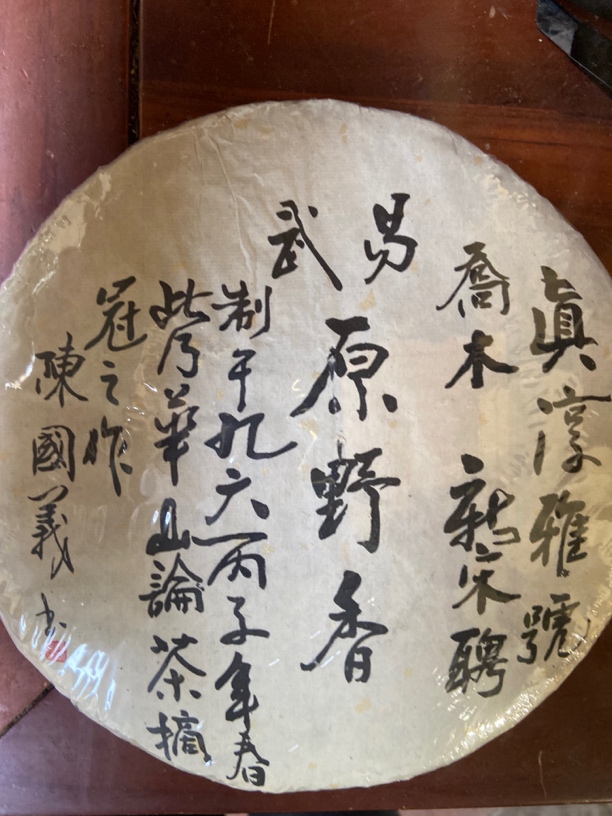 真淳雅號
喬木 新宋聘
易武
原野香
制于九六丙子年春
此乃華山論茶摘
冠之作
陳國義书